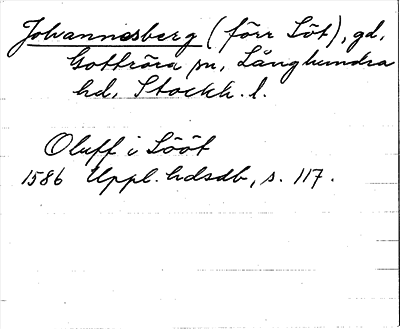 Johannesberg (förr Sööt), gd,
Gottröra sn, Långhundra
hd, Stockh. l.
Oluff i Sööt
1586 Uppl. hdsdb, s. 117.